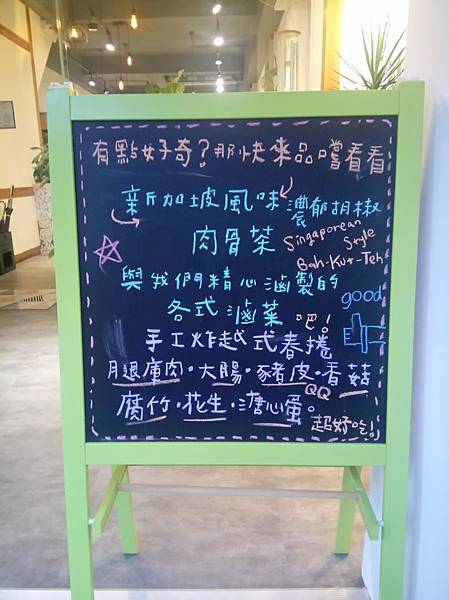 有點好奇?那快來品嚐看看
新加坡風味 濃郁胡椒
肉骨茶
Singaporean
Style
Bah-Kut-Teh
與我們精心滷製的
各式滷菜
吧!
good
手工炸越式春捲
腿庫肉·大腸·豬皮·香菇
QQ
腐竹·花生·溏心蛋。
超好吃!